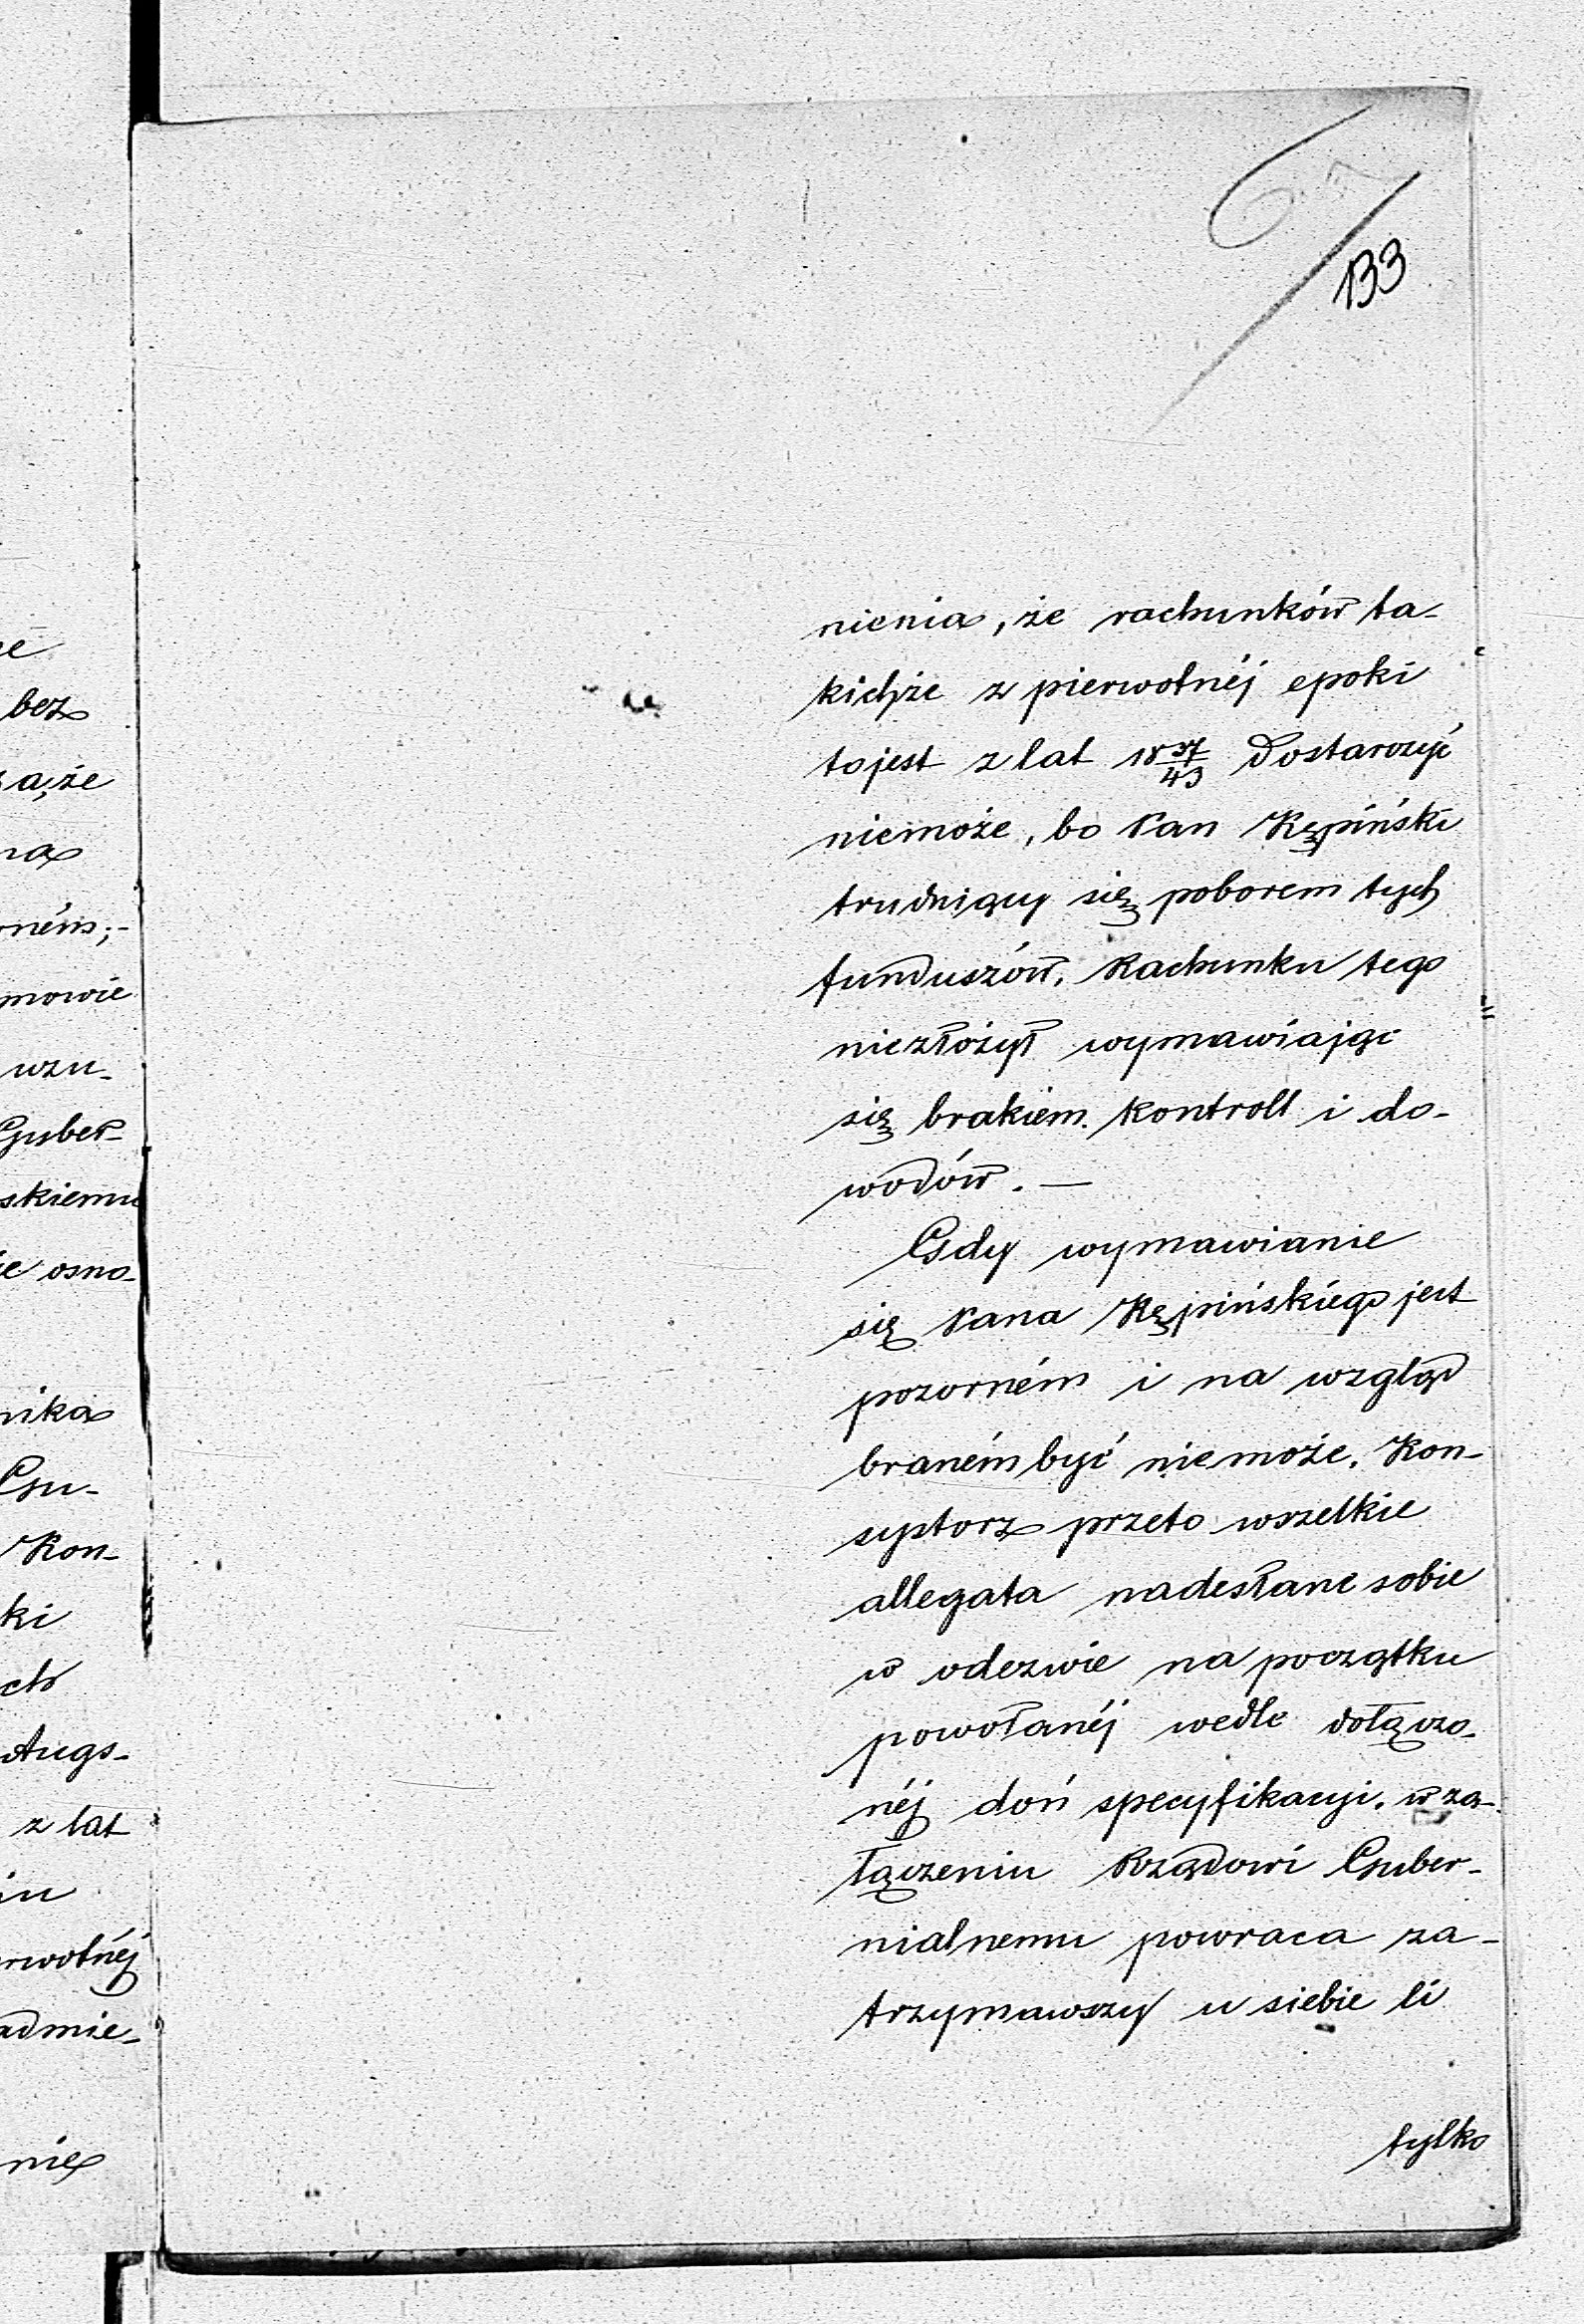 67
133
nienia, że rachunków ta-
kichże z pierwotnéj epoki
tojest z lat 18 37/43 dostarczyć
niemoże, bo Pan Kępiński
trudniący się poborem tych
funduszów, Rachunku tego
niezłożył wymawiając
się brakiem kontroll i do-
wodów. —
Gdy wymawianie
się Pana Kępińskiego jest
pozorném i na wzgląd
braném być niemoże, Kon-
systorz przeto wszelkie
allegata nadesłane sobie
w odezwie na początku
powołanéj wedle dołączo-
néj doń specyfikacyi, w za-
łączeniu Rządowi Guber-
nialnemu powraca za-
trzymawszy u siebie li
tylko
bez
a, że
mowie
wzu-
Guber-
skiemu
ie osno-
nika
Gu-
Kon-
ki
Augs-
z lat
rwotnéj
admie-
nie